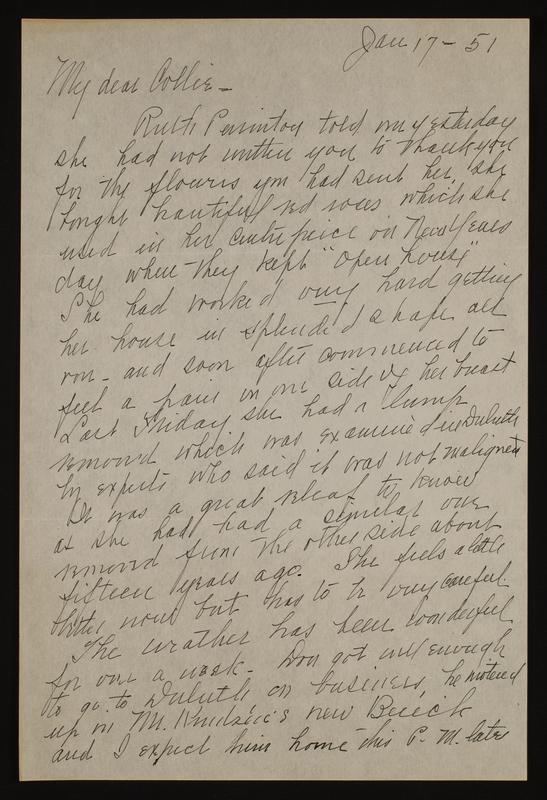 Jan 17 - 51
My dear Collie -
Ruth told me yesterday
she had not written you to thank you
for the flowers you had sent her, she
bought beautiful red roses which she
used in her centre piece on New Years
day when they kept "open house"
She had worked very hard getting
her house in splendid shape all
round - and soon after commenced to
feel a pain in one side of her breast
Last Friday she had a lump
removed which was examined in Duluth
by experts who said it was not malignent
It was a great relief to know
as she had had a similar one
removed from the other side about
fifteen years ago. She feels a little
better now but has to be very careful.
The weather has been wonderful
for over a week - Don got well enough
to go to Duluth on business, he motored
up in Mr. new Buick
and I expect him home this P.M. late